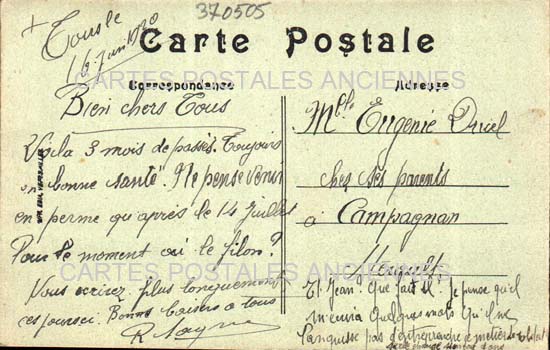 370505
+ Tousle
16 Juin 1920
Carte Postale
CARTES POSTALES ANCIENNES
Correspondance
Adresse
Bien chers Tous
Voila 3 mois de passés. Toujours
en bonne santé". Ne pense venir
en perme qu'après le 14 Juillet
Pour le moment où le filon?
Vous écrirez plus longuement
ces jours ci. Bons baisers a tous
R
Mlle Eugénie
chez ses parents
à Campagnan
CARTES POSTALES ANCIENNES
Et Jean? que fait il? Je pense qu'il
m'enverra quelques mots. Qu'il ne
languisse pas d'entreprendre le métier de